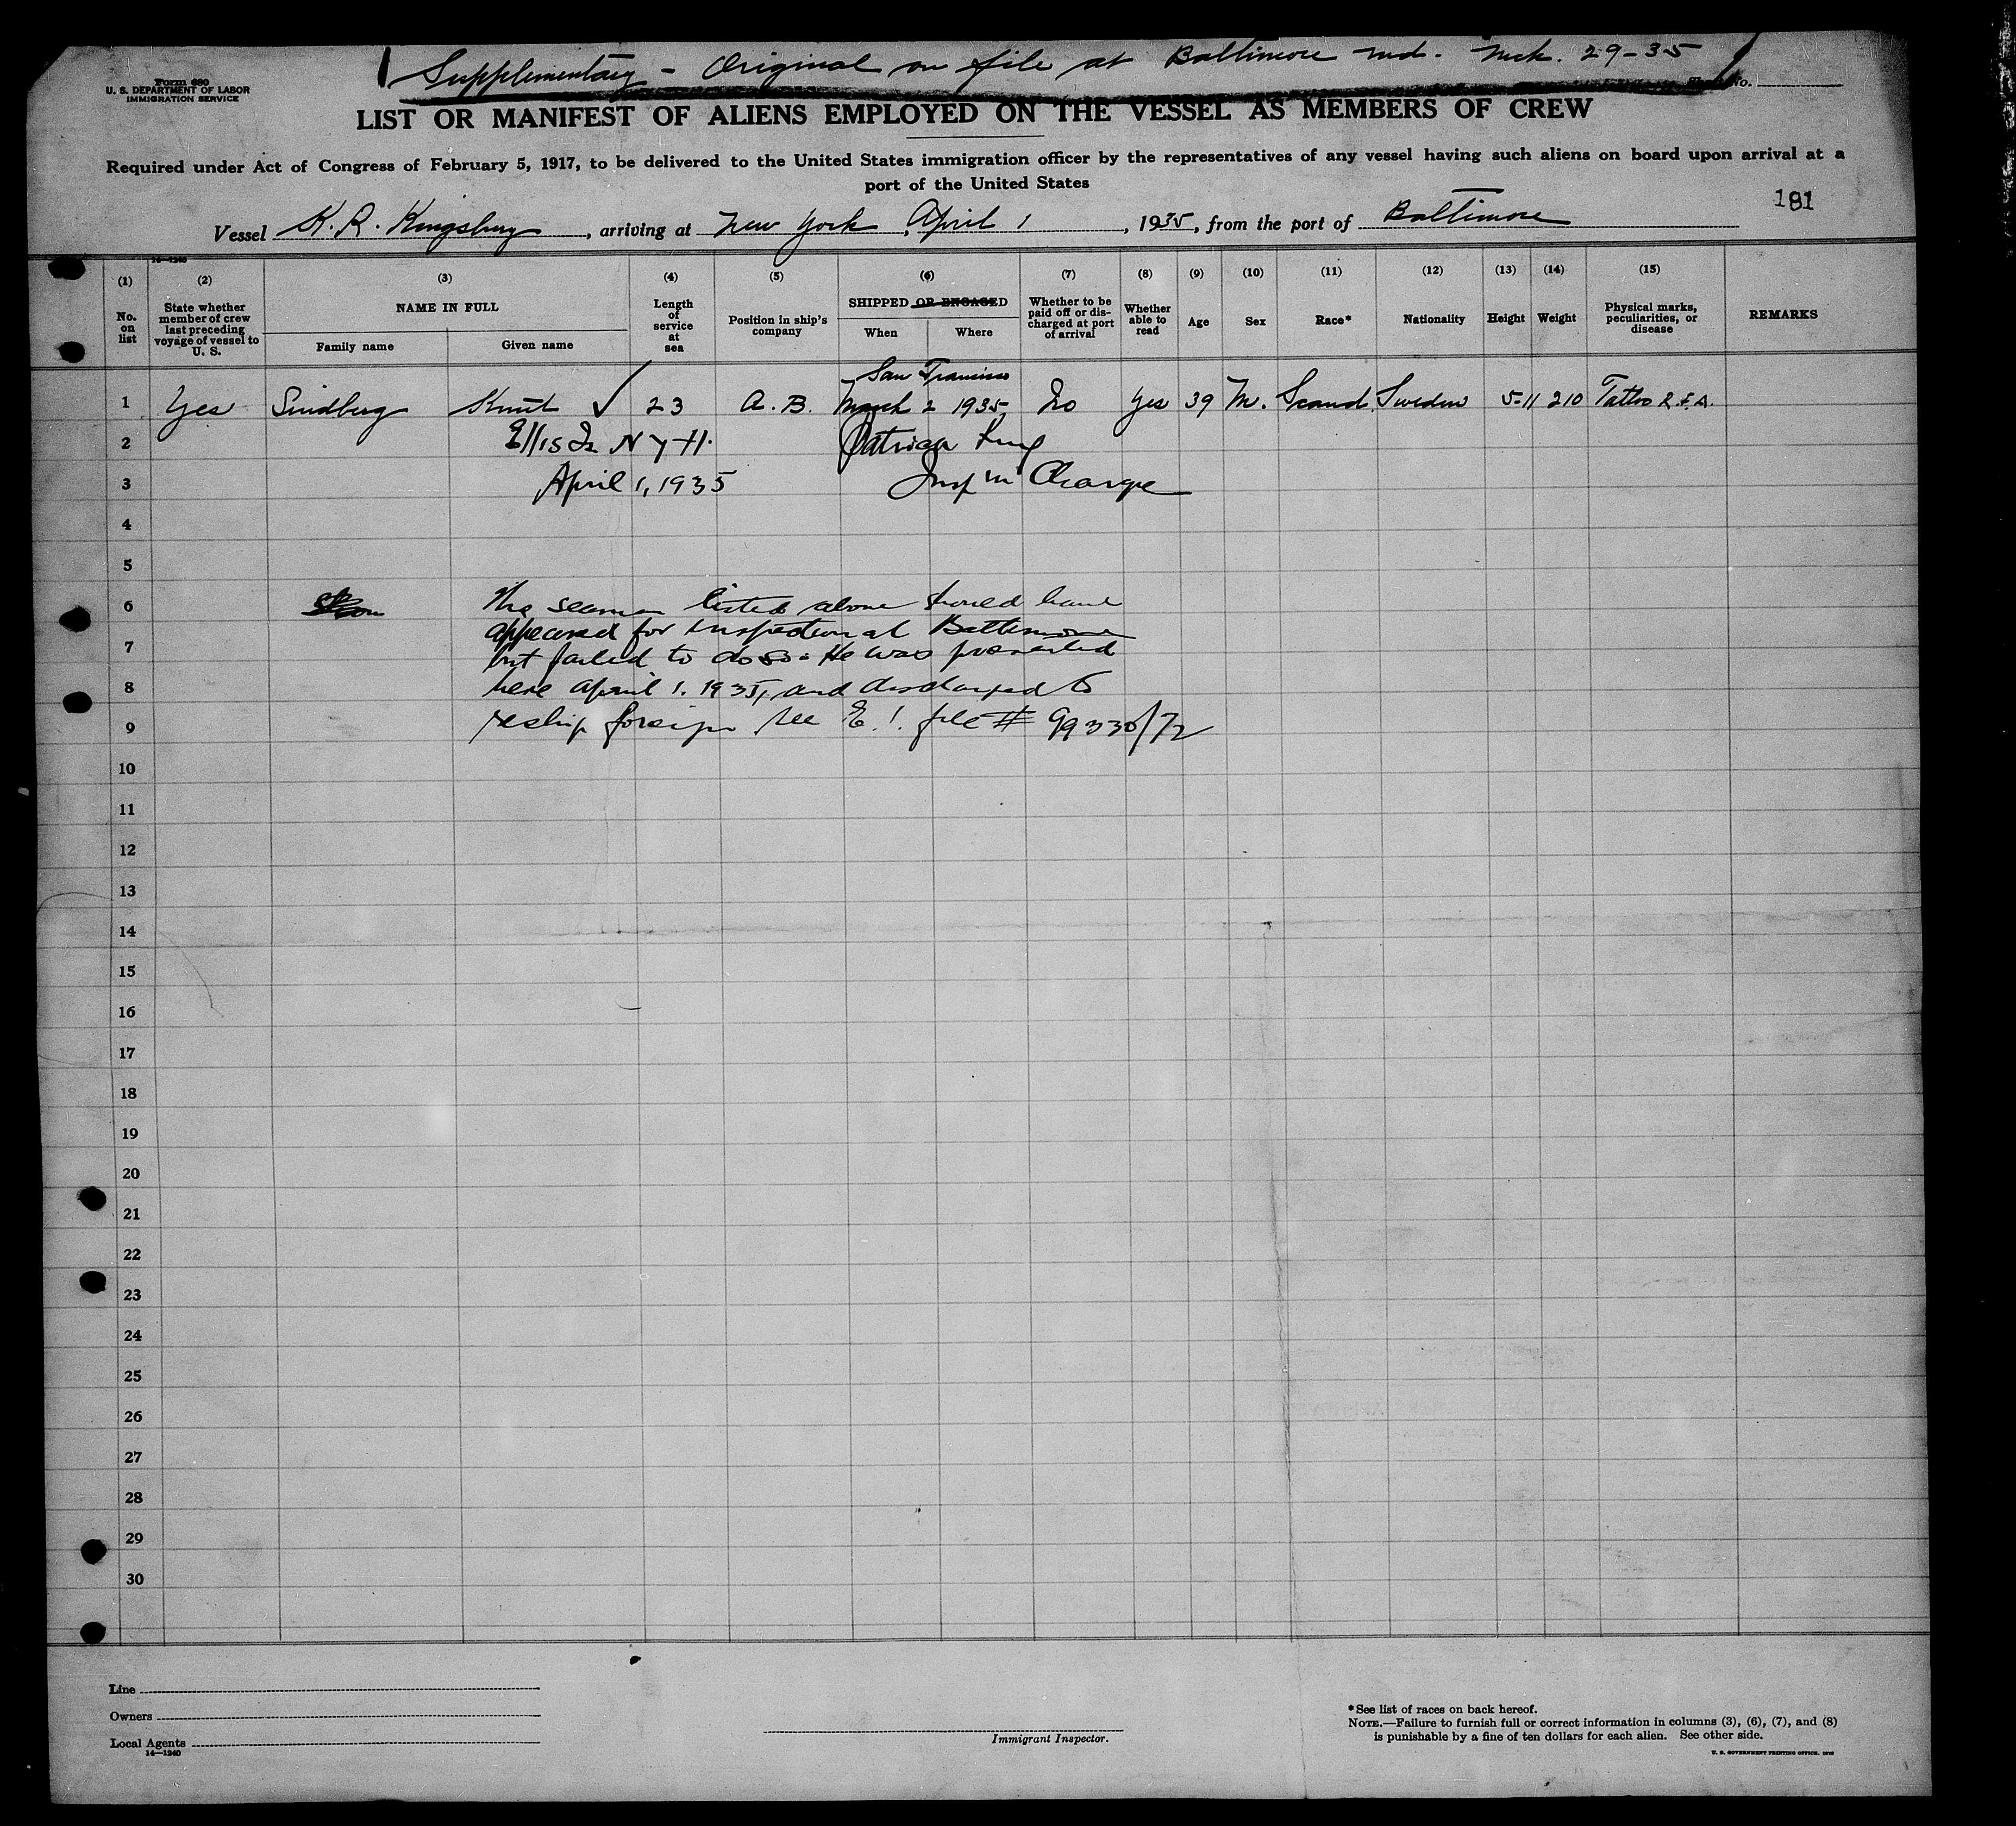 Supplementary - Original on file at Baltimore Md. Mch. 29-35
Form 680
U. S. DEPARTMENT OF LABOR
IMMIGRATION SERVICE
No.
LIST OR MANIFEST OF ALIENS EMPLOYED ON THE VESSEL AS MEMBERS OF CREW
Required under Act of Congress of February 5, 1917, to be delivered to the United States immigration officer by the representatives of any vessel having such aliens on board upon arrival at a
port of the United States
181
Vessel K. R. Kingsbury, arriving at New York, April 1, 1935, from the port of Baltimore
14-1240
(1) (2) (3) (4) (5) (6) (7) (8) (9) (10) (11) (12) (13) (14) (15)
No. on list
State whether member of crew last preceding voyage of vessel to U. S.
NAME IN FULL
Family name
Given name
Length of service at sea
Position in ship's company
SHIPPED OR ENGAGED
When
Where
Whether to be paid off or discharged at port of arrival
Whether able to read
Age
Sex
Race*
Nationality
Height
Weight
Physical marks, peculiarities, or disease
REMARKS
San Francisco
1 Yes Sindberg Knut ✓ 23 A. B. March 2 1935 No Yes 39 M. Scand. Sweden 5-11 210 Tattoo R.F.A.
2 Ellis Is N Y H.
3 April 1, 1935 Insp in Charge
4
5
6 The seaman listed above should have
appeared for inspection at Baltimore
7 but failed to do so. He was presented
8 here April 1. 1935, and discharged to
9 reship foreign See E. I. file # 99330/72
10
11
12
13
14
15
16
17
18
19
20
21
22
23
24
25
26
27
28
29
30
Line
Owners
Local Agents
14-1240
Immigrant Inspector.
*See list of races on back hereof.
NOTE.—Failure to furnish full or correct information in columns (3), (6), (7), and (8)
is punishable by a fine of ten dollars for each alien. See other side.
U. S. GOVERNMENT PRINTING OFFICE.